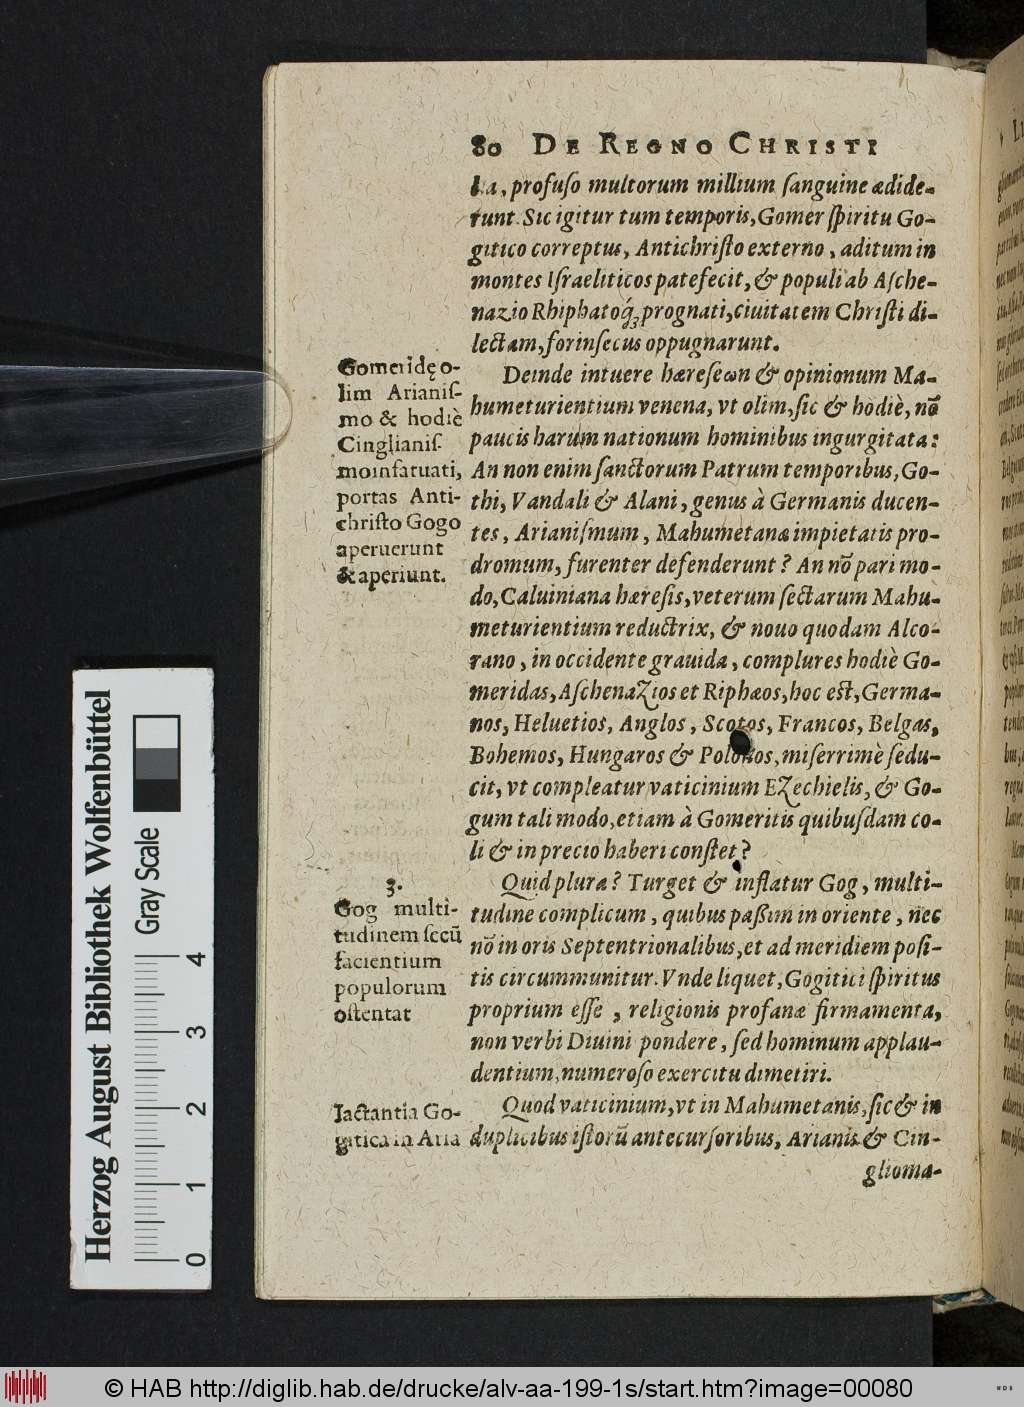 80 DE REGNO CHRISTI
la, profuso multorum millium sanguine ædide-
runt. Sic igitur tum temporis, Gomer spiritu Go-
gitico correptus, Antichristo externo, aditum in
montes Israeliticos patefecit, & populi ab Asche-
nazio Rhiphatoq́ꝫ prognati, ciuitatem Christi di-
lectam, forinsecus oppugnarunt.
Gomeridę o-
lim Arianis-
mo & hodiè
Cinglianis-
mo infatuati,
portas Anti-
christo Gogo
aperuerunt
& aperiunt.
Deinde intuere hæreseωn & opinionum Ma-
humeturientium venena, vt olim, sic & hodiè, nō
paucis harum nationum hominibus ingurgitata:
An non enim sanctorum Patrum temporibus, Go-
thi, Vandali & Alani, genus à Germanis ducen-
tes, Arianismum, Mahumetanæ impietatis pro-
dromum, furenter defenderunt? An nō pari mo-
do, Caluiniana hæresis, veterum sectarum Mahu-
meturientium reductrix, & nouo quodam Alco-
rano, in occidente grauida, complures hodiè Go-
meridas, Aschenazios et Riphæos, hoc est, Germa-
nos, Heluetios, Anglos, Scotos, Francos, Belgas,
Bohemos, Hungaros & Polonos, miserrimè sedu-
cit, vt compleatur vaticinium Ezechielis, & Go-
gum tali modo, etiam à Gomeritis quibusdam co-
li & in precio haberi constet?
3.
Gog multi-
tudinem secū
facientium
populorum
ostentat
Quid plura? Turget & inflatur Gog, multi-
tudine complicum, quibus paßim in oriente, nec
nō in oris Septentrionalibus, et ad meridiem posi-
tis circummunitur. Vnde liquet, Gogitici spiritus
proprium esse, religionis profanæ firmamenta,
non verbi Diuini pondere, sed hominum applau-
dentium, numeroso exercitu dimetiri.
Iactantia Go-
gitica in Aria
Quod vaticinium, vt in Mahumetanis, sic & in
duplicibus istorū antecursoribus, Arianis & Cin-
glioma-
Herzog August Bibliothek Wolfenbüttel
Gray Scale
0 1 2 3 4
© HAB http://diglib.hab.de/drucke/alv-aa-199-1s/start.htm?image=00080